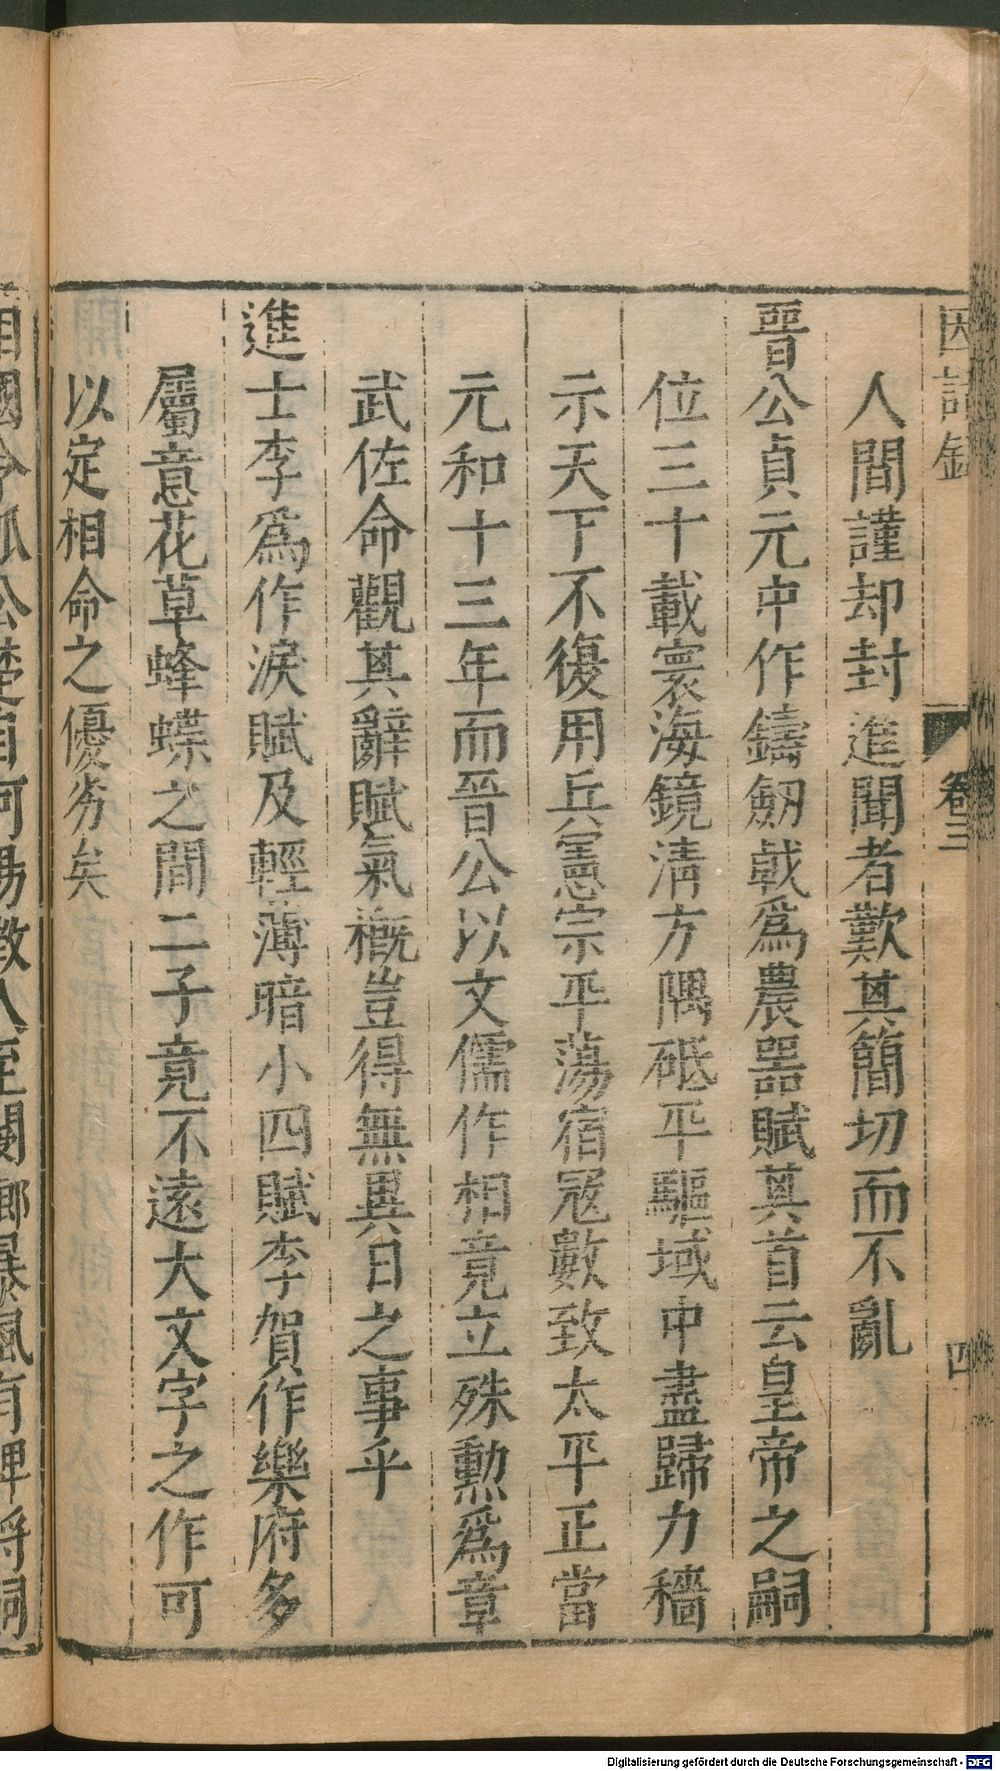 因話錄 卷三 四
人間謹却封進聞者歎其簡切而不亂
晉公貞元中作鑄劒戟爲農器賦其首云皇帝之嗣
位三十載寰海鏡清方隅砥平驅域中盡歸力穡
示天下不復用兵憲宗平蕩宿冦數致太平正當
元和十三年而晉公以文儒作相竟立殊勲爲章
武佐命觀其辭賦氣槪豈得無異日之事乎
進士李爲作淚賦及輕薄暗小四賦李賀作樂府多
屬意花草蜂蝶之間二子竟不遠大文字之作可
以定相命之優劣矣
相國令狐公楚自河陽徵入至閿鄉暴風有裨將飼
Digitalisierung gefördert durch die Deutsche Forschungsgemeinschaft - DFG